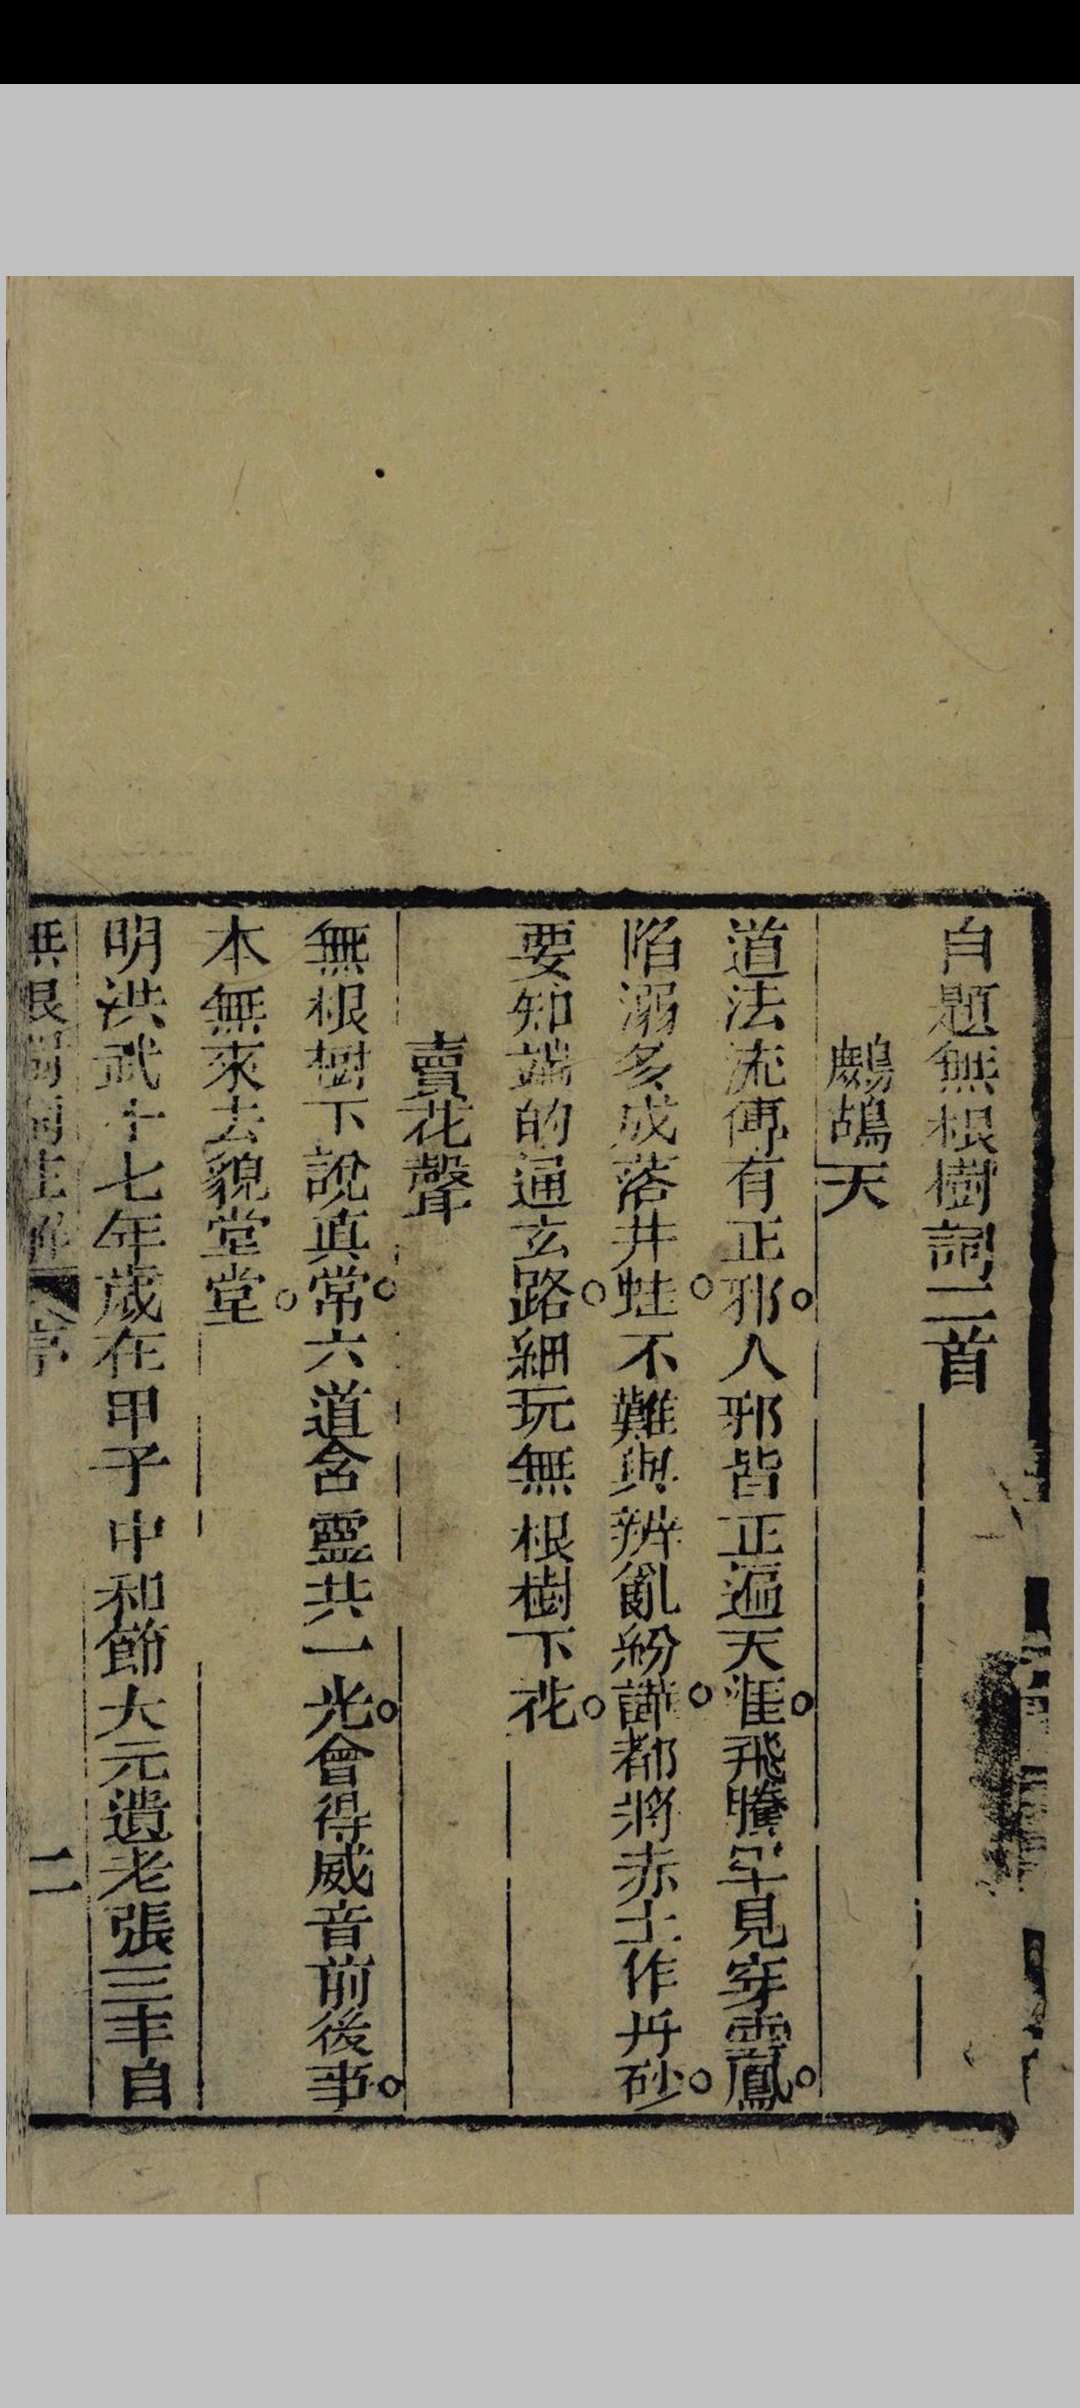 自題無根樹詞二首
鷓鴣天
道法流傳有正邪。入邪皆正遍天涯。飛騰罕見穿雲鳳。
陷溺多成落井蛙。不難與辨亂紛譁。都將赤土作丹砂。
要知端的通玄路。細玩無根樹下花。
賣花聲
無根樹下說真常。六道含靈共一光。會得威音前後事。
本無來去貌堂堂。
明洪武十七年歲在甲子中和節大元遺老張三丰自
無根樹詞註解 序
二